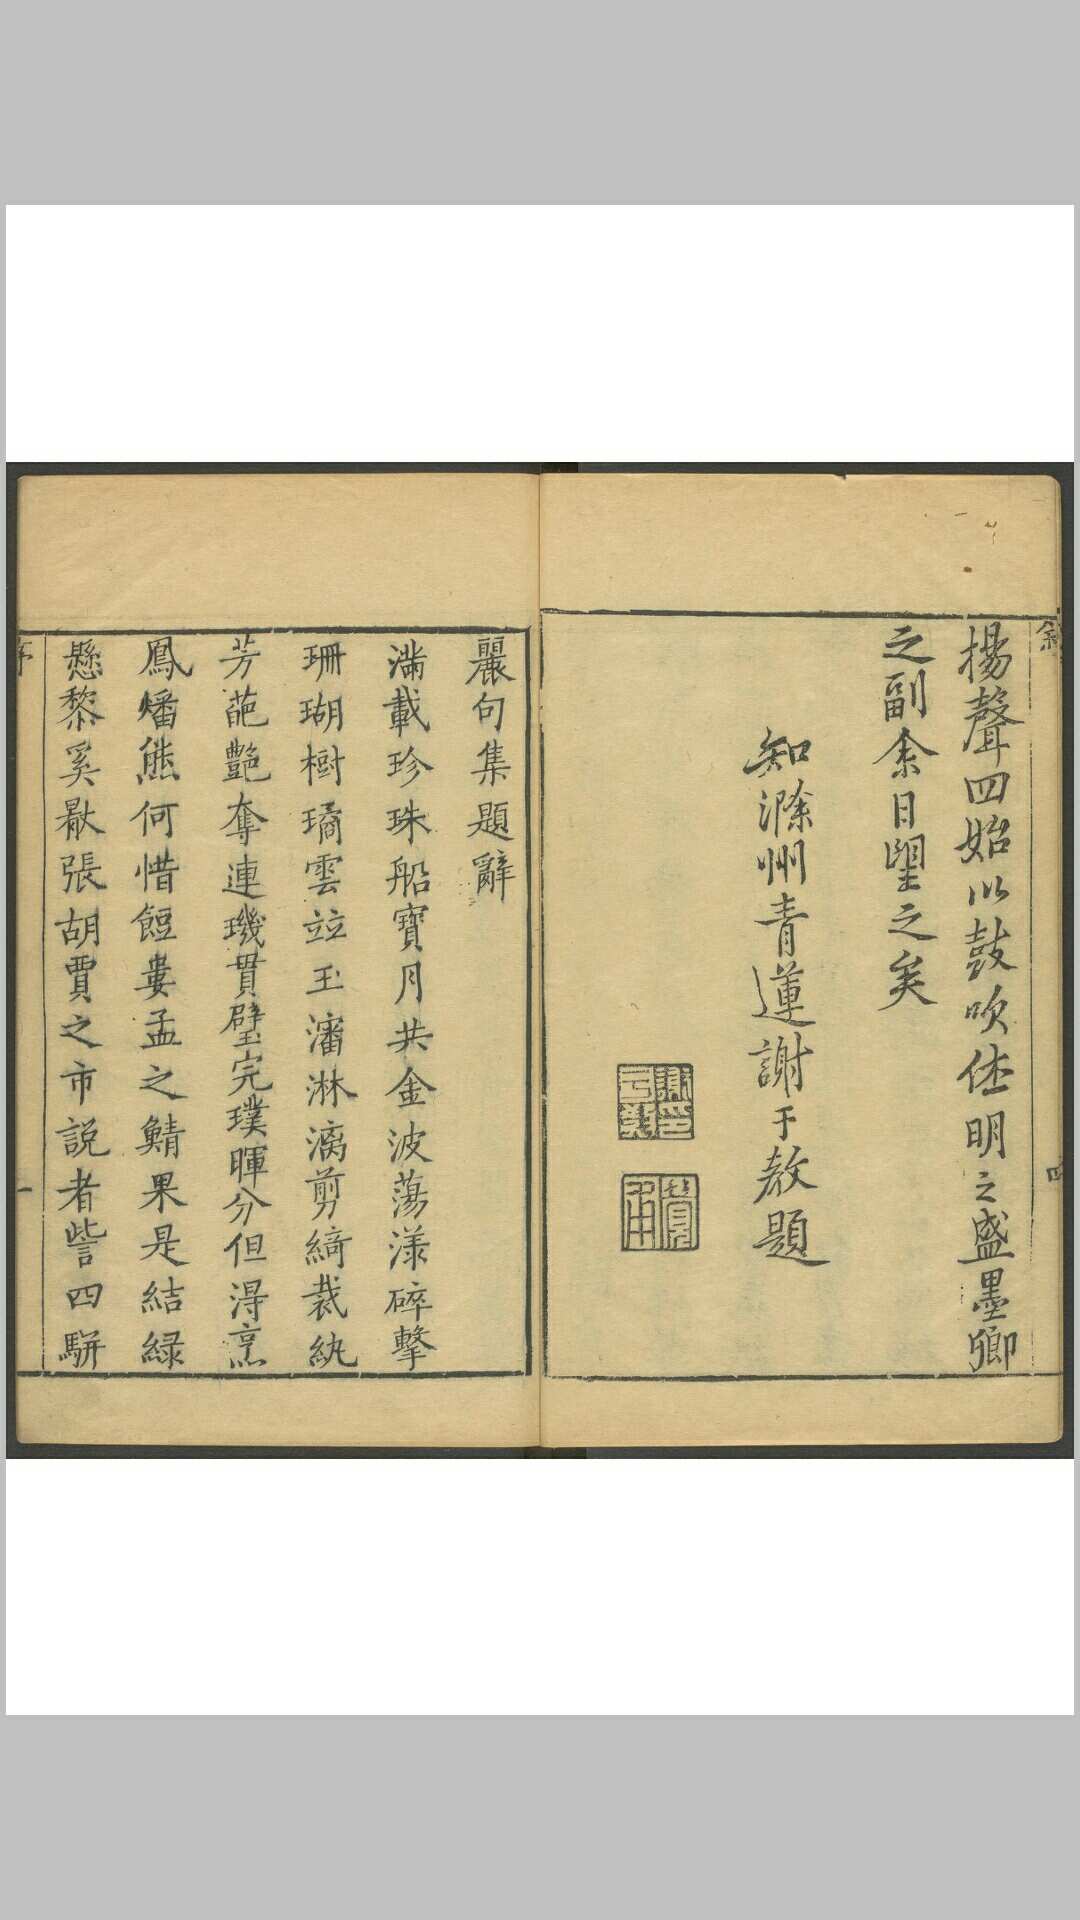 敘
揚聲四始以鼓吹休明之盛墨卿
之副余日望之矣
知滁州青蓮謝于教題
四
麗句集題辭
滿載珍珠船寶月共金波蕩漾碎擊
珊瑚樹璚雲竝玉瀋淋漓剪綺裁紈
芳葩艷奪連璣貫璧完璞暉分但得烹
鳳燔熊何惜餖婁孟之鯖果是結緑
懸黎奚厭張胡賈之市説者訾四駢
序
一